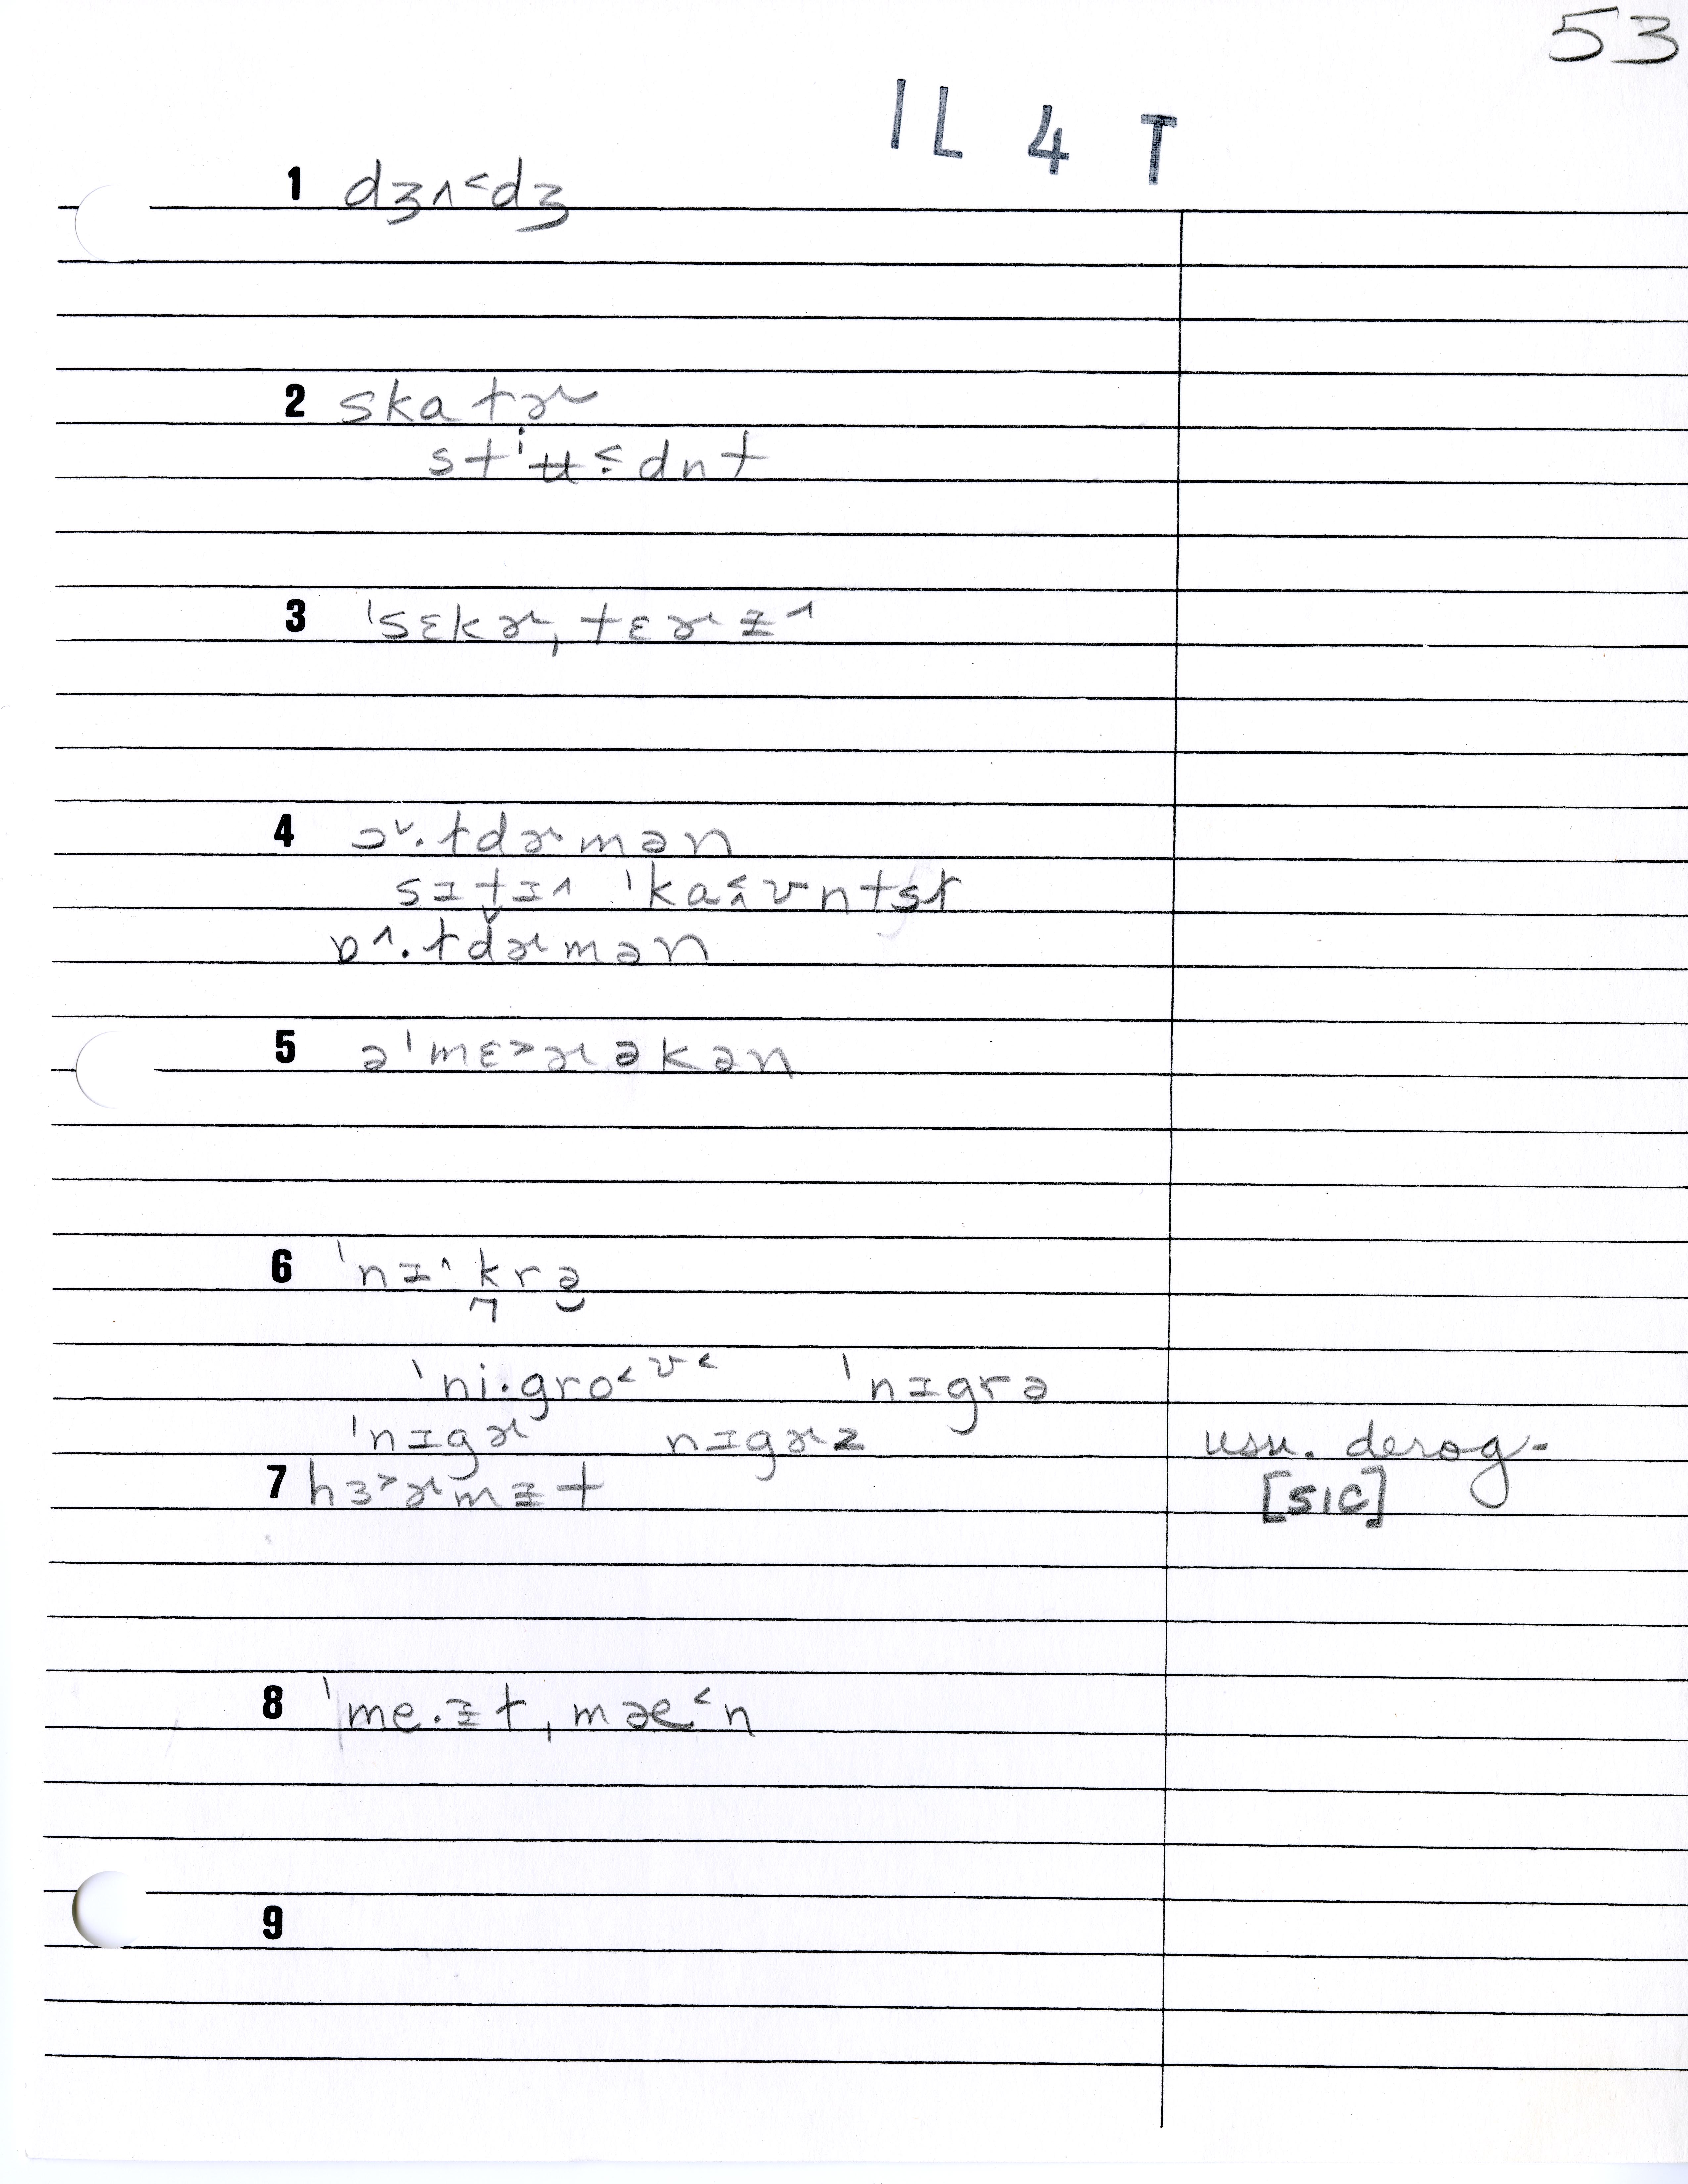 53
IL 4 T
1 dʒʌ˂dʒ
2 skatɚ
stʲʉ˂dnt
3 ˈsɛkɚˌtɛɚɪ˄
4 ɔ˅·ɫdɚmən
sɪtɪ˄ ˈka˂ʊntsɫ
ɒ˄·ɫd̬ɚmən
5 əˈmɛ˃ɚəkən
6 ˈnɪ˄krə
ˈni·gro˂ʊ˂ ˈnɪgrə
ˈnɪgɚ nɪgɚz usu. derog-
7 hɜ˃ɚmɨt [SIC]
8 ˈme·ɨtˌmæ˂n
9